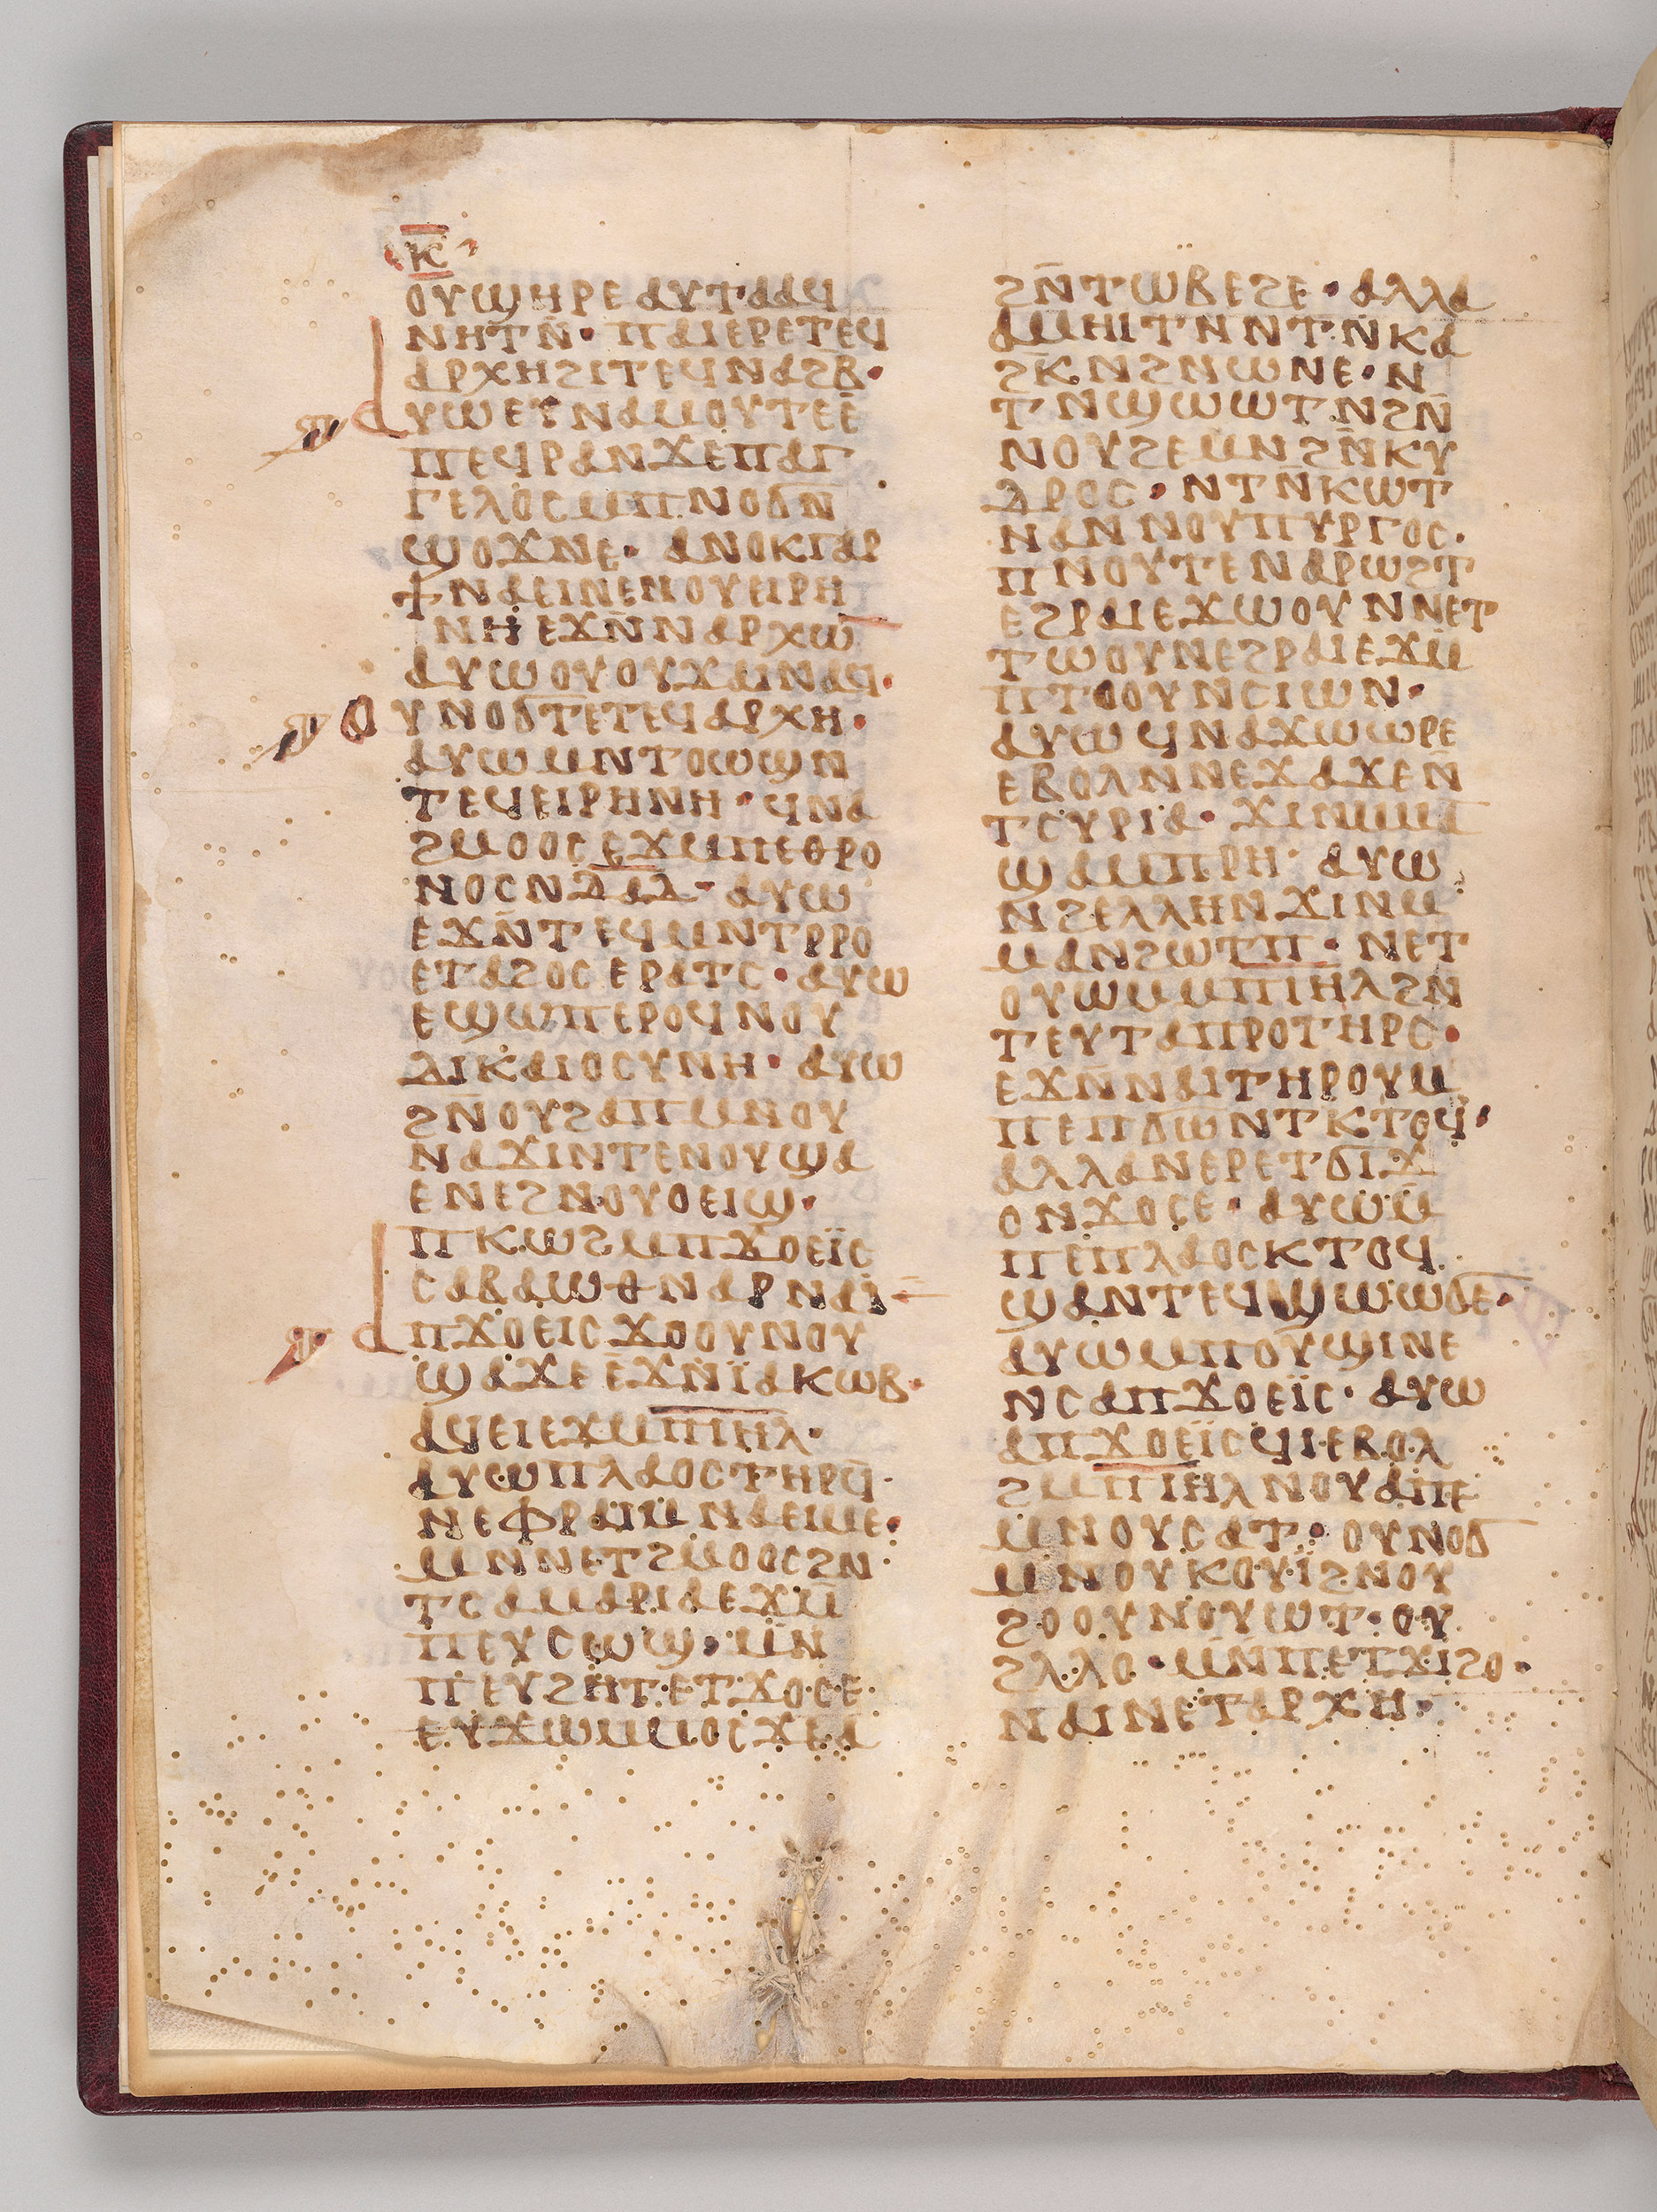 ⲕ̅
ⲟⲩϣⲏⲣⲉ ⲁⲩⲧⲁⲁϥ
ⲛⲏⲧⲛ̄· ⲡⲁⲓⲉⲣⲉⲧⲉϥ
ⲁⲣⲭⲏϩⲓⲧⲉϥⲛⲁϩⲃ·
ⲁⲩⲱⲉⲩⲛⲁⲙⲟⲩⲧⲉⲉ̄
ⲡⲉϥⲣⲁⲛϫⲉⲡⲁⲅ
ⲅⲉⲗⲟⲥⲙⲡⲛⲟϭⲛ̄
ϣⲟϫⲛⲉ· ⲁⲛⲟⲕⲅⲁⲣ
ϯⲛⲁⲉⲓⲛⲉⲛⲟⲩⲉⲓⲣⲏ
ⲛⲏⲉϫⲛ̄ⲛⲁⲣⲭⲱ̄
ⲁⲩⲱⲟⲩⲟⲩϫⲁⲓⲛⲁϥ·
ⲟⲩⲛⲟϭⲧⲉⲧⲉϥⲁⲣⲭⲏ·
ⲁⲩⲱⲙⲛⲧⲟⲱϣⲛ
ⲧⲉϥⲉⲓⲣⲏⲛⲏ· ϥⲛⲁ
ϩⲙⲟⲟⲥⲉϫⲙⲡⲉⲑⲣⲟ
ⲛⲟⲥⲛⲇⲁⲇ· ⲁⲩⲱ
ⲉϫⲛ̄ⲧⲉϥⲙⲛⲧⲣⲣⲟ
ⲉⲧⲁϩⲟⲥⲉⲣⲁⲧⲥ· ⲁⲩⲱ
ⲉϣⲱⲡⲉⲣⲟϥⲛⲟⲩ
ⲇⲓⲕⲁⲓⲟⲥⲩⲛⲏ· ⲁⲩⲱ
ϩⲛ̄ⲟⲩϩⲁⲡⲙⲛⲟⲩ
ⲛⲁϫⲓⲛⲧⲉⲛⲟⲩϣⲁ
ⲉⲛⲉϩⲛⲟⲩⲟⲉⲓϣ·
ⲡⲕⲱϩⲙⲡϫⲟⲉⲓ̈ⲥ
ⲥⲁⲃⲁⲱⲑⲛⲁⲣⲛⲁⲓ̈
ⲁⲡϫⲟⲉⲓⲥϫⲟⲟⲩⲛⲟⲩ
ϣⲁϫⲉⲉ̄ϫⲛ̄ⲓ̈ⲁⲕⲱⲃ·
ⲁϥⲉⲓⲉϫⲙⲡⲓ̅ⲏ̅ⲗ̅·
ⲁⲩⲱⲡⲗⲁⲟⲥⲧⲏⲣϥ̄·
ⲛⲉⲫⲣⲁⲓⲙⲛⲁⲉⲓⲙⲉ·
ⲙⲛⲛⲉⲧϩⲙⲟⲟⲥϩⲛ
ⲧⲥⲁⲙⲁⲣⲓⲁⲉϫⲙ̄
ⲡⲉⲩⲥⲱϣ· ⲙ̄ⲛ
ⲡⲉⲩϩⲏⲧⲉⲧϫⲟⲥⲉ·
ⲉⲩϫⲱⲙⲙⲟⲥϫⲉⲁ
ϩⲛ̄ⲧⲱⲃⲉϩⲉ· ⲁⲗⲗⲁ
ⲁⲙⲏⲓⲧⲛⲛⲧⲛ̄ⲕⲁ
ϩⲕⲛϩⲛⲱⲛⲉ· ⲛ
ⲧⲛϣⲱⲱⲧⲛϩⲛ̄
ⲛⲟⲩϩⲉⲙⲛϩⲛ̄ⲕⲩ
ⲇⲣⲟⲥ· ⲛⲧⲛ̄ⲕⲱⲧ
ⲛⲁⲛⲛⲟⲩⲡⲩⲣⲅⲟⲥ·
ⲡⲛⲟⲩⲧⲉⲛⲁⲣⲱϩⲧ
ⲉϩⲣⲁⲓⲉϫⲱⲟⲩⲛⲛⲉⲧ
ⲧⲱⲟⲩⲛⲉϩⲣⲁⲓⲉϫⲙ̄
ⲡⲧⲟⲟⲩⲛⲥⲓⲱⲛ·
ⲁⲩⲱϥⲛⲁϫⲱⲱⲣⲉ
ⲉⲃⲟⲗⲛⲛⲉϫⲁϫⲉⲛ̄
ⲧⲥⲩⲣⲓⲁ· ϫⲓⲛⲙⲙⲁ̄
ϣⲁⲙⲡⲣⲏ· ⲁⲩⲱ
ⲛϩⲉⲗⲗⲏⲛϫⲓⲛⲙ
ⲙⲁⲛϩⲱⲧⲡ· ⲛⲉⲧ
ⲟⲩⲱⲙⲙⲡⲓⲏⲗϩⲛ
ⲧⲉⲩⲧⲁⲡⲣⲟⲧⲏⲣⲥ·
ⲉϫⲛ̄ⲛⲁⲓⲧⲏⲣⲟⲩⲙ
ⲡⲉⲡϭⲱⲛⲧⲕⲧⲟϥ·
ⲁⲗⲗⲁⲛⲉⲣⲉⲧϭⲓϫ
ⲟⲛϫⲟⲥⲉ· ⲁⲩⲱⲙ̄
ⲡⲉⲡⲗⲁⲟⲥⲕⲧⲟϥ
ϣⲁⲛⲧⲉϥϣⲱⲱϭⲉ·
ⲁⲩⲱⲙⲡⲟⲩϣⲓⲛⲉ
ⲛⲥⲁⲡϫⲟⲉⲓ̈ⲥ· ⲁⲩⲱ
ⲁⲡϫⲟⲉⲓ̈ⲥϥⲓⲉⲃⲟⲗ
ϩⲙⲡⲓ̅ⲏ̅ⲗ̅ⲛⲟⲩⲁⲡⲉ
ⲙⲛⲟⲩⲥⲁⲧ· ⲟⲩⲛⲟϭ
ⲙⲛⲟⲩⲕⲟⲩⲓ̈ϩⲛⲟⲩ
ϩⲟⲟⲩⲛⲟⲩⲱⲧ· ⲟⲩ
ϩⲗⲗⲟ· ⲙⲛ̄ⲡⲉⲧϫⲓϩⲟ·
ⲛⲁⲓⲛⲉⲧⲁⲣⲭⲏ·